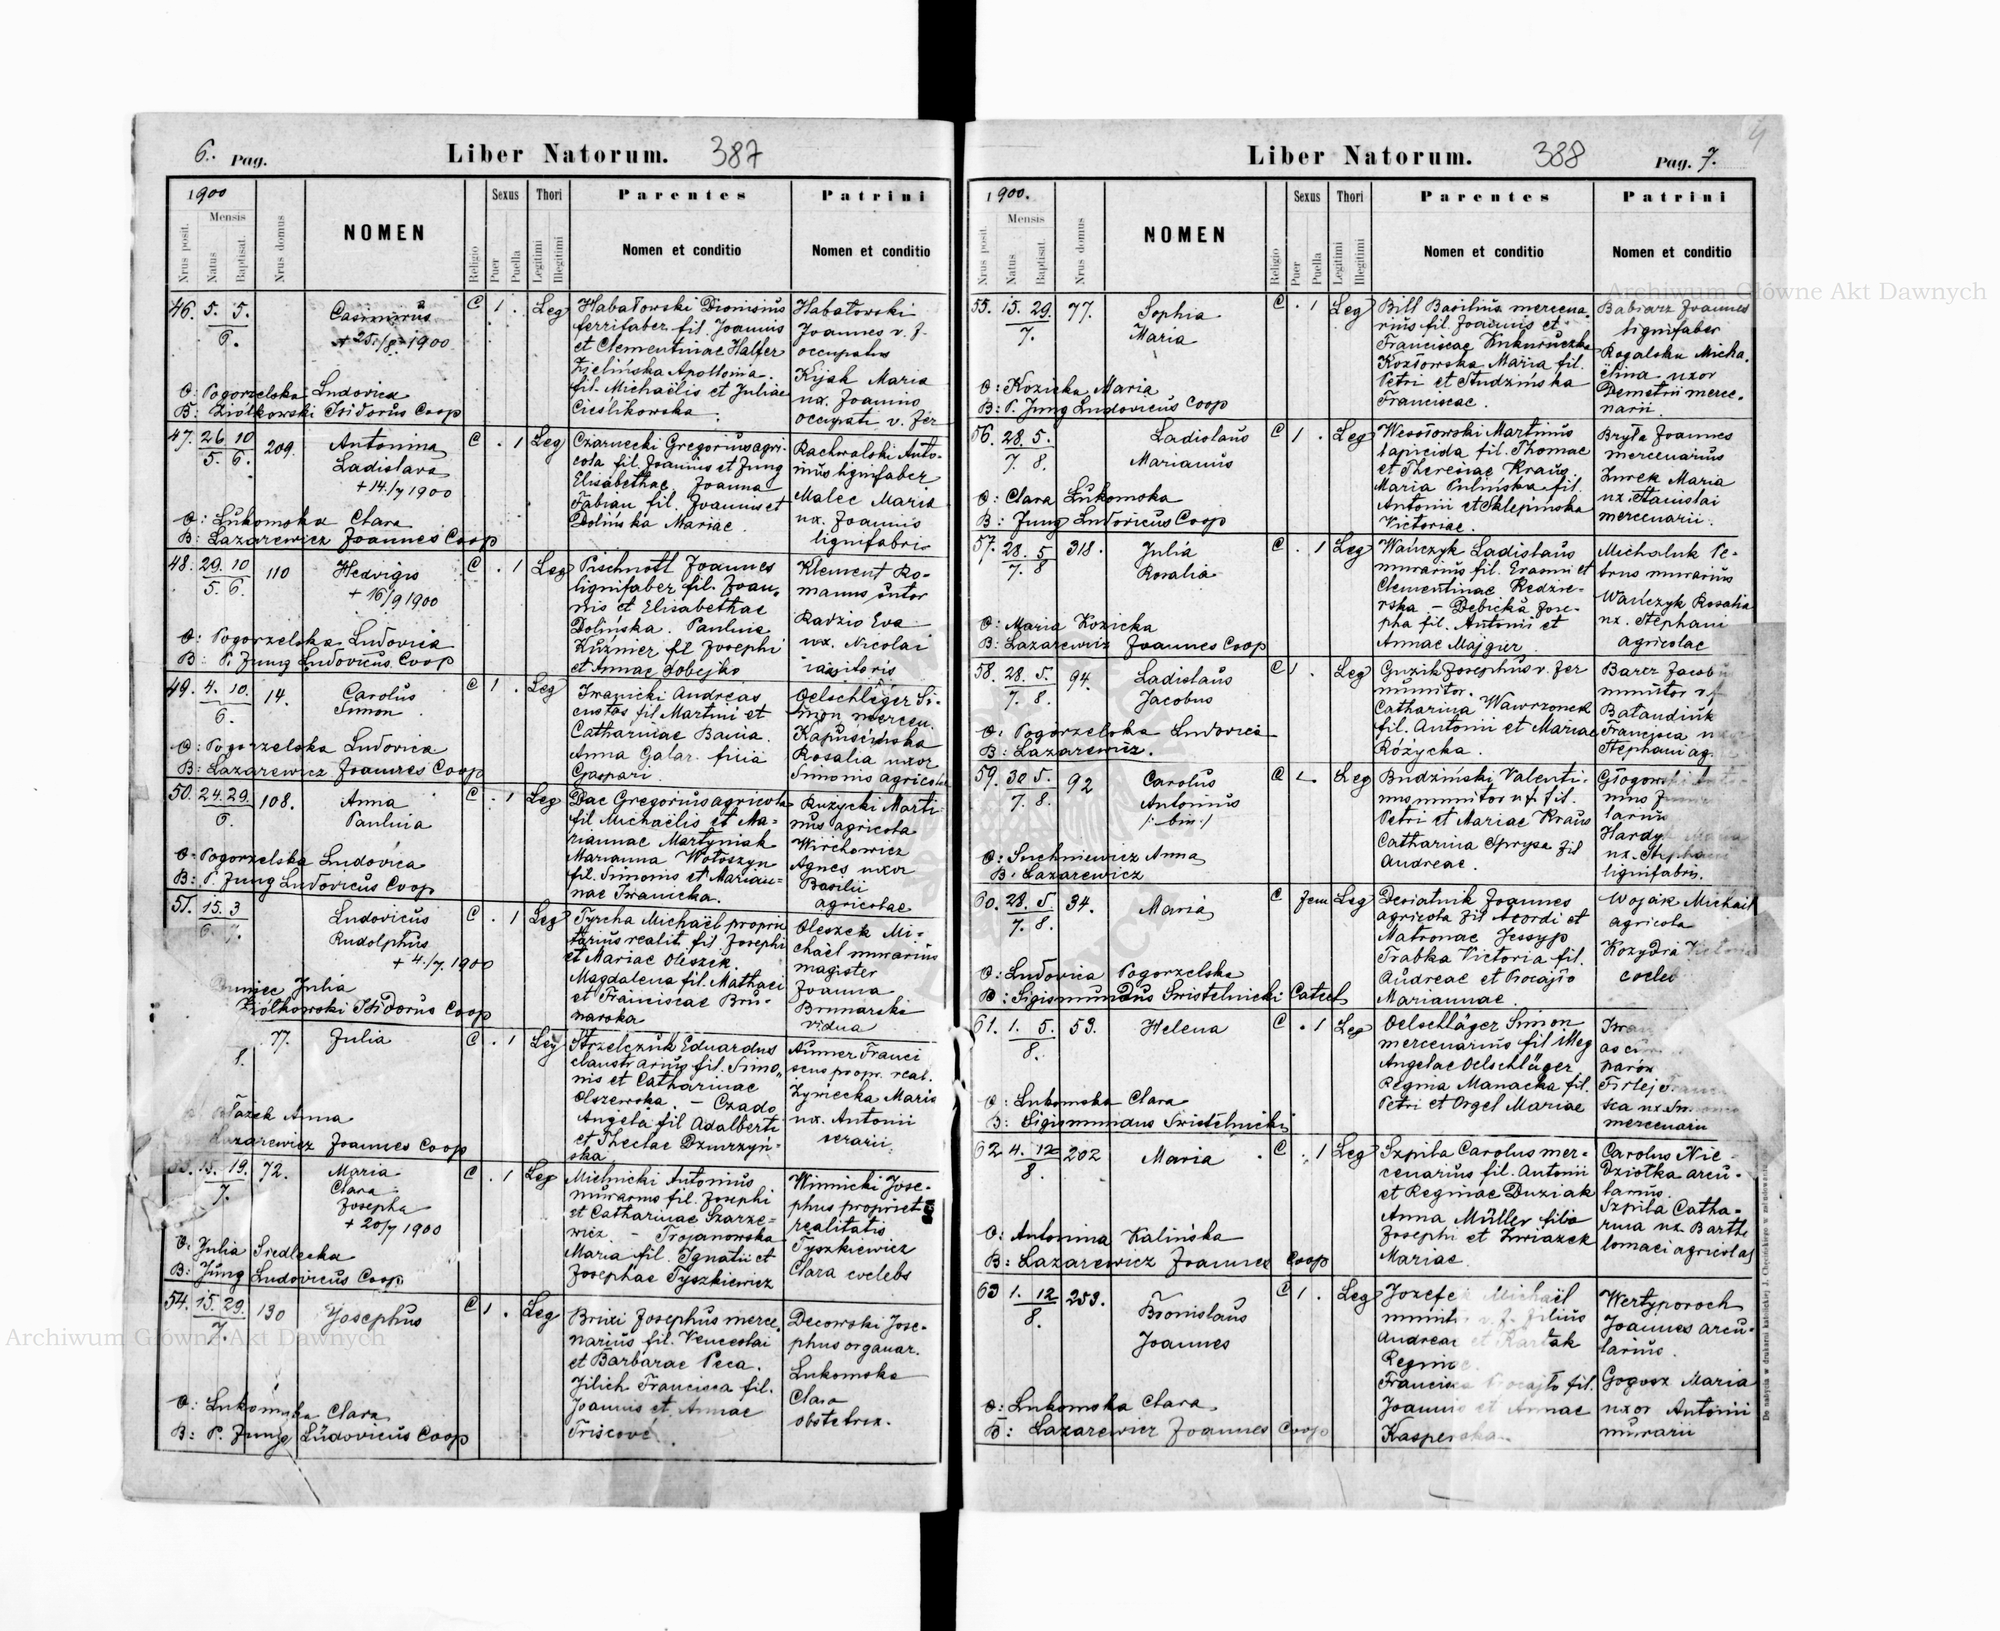 6. Pag.
Liber Natorum. 387
1900
Mensis
Nrus posit.
Natus
Baptisat.
Nrus domus
NOMEN
Religio
Sexus
Puer
Puella
Thori
Legitimi
Illegitimi
Parentes
Nomen et conditio
Patrini
Nomen et conditio
46. 5. 5.
6.
Casimirus
+ 25./8. 1900
O: Pogorzelska Ludovica
B: Ziółkowski Isidorus Coop
C 1 . Leg
Habatowski Dionisius
ferrifaber fil. Joannis
et Clementinae Halfer
Zielińska Apollonia
fil. Michaëlis et Juliae
Cieślikowska
Habatowski
Joannes v. f.
occupatus
Kijak Maria
ux. Joannis
occupati v. fer
47. 26. 10
5. 6.
209.
Antonina
Ladislava
+ 14./7 1900
O: Łukomska Clara
B: Lazarewicz Joannes Coop
C . 1 Leg
Czarnecki Gregorius agri-
cola fil. Joannis et Jung
Elisabethae. Joanna
Fabian fil. Joannis et
Dolińska Mariae.
Rachwalski Anto-
nius lignifaber
Malec Maria
ux. Joannis
lignifabris
48. 29. 10
5. 6.
110
Hedvigis
+ 16/9 1900
O: Pogorzelska Ludovica
B: P. Jung Ludovicus Coop
C . 1 Leg
Pischnott Joannes
lignifaber fil. Joan-
nis et Elisabethae
Dolińska. Paulina
Kuźnier fil Josephi
et Annae Sobejko
Klement Ro-
manus sutor
Radzio Eva
ux. Nicolai
ianitoris
49. 4. 10.
6.
14.
Carolus
Simon
O: Pogorzelska Ludovica
B: Lazarewicz Joannes Coop
C 1 . Leg
Iwanicki Andreas
custos fil Martini et
Catharinae Bania.
Anna Galar. filia
Gaspari
Oelschläger Si-
mon mercen.
Kapuścińska
Rosalia uxor
Simonis agricolae
50. 24. 29.
6.
108.
Anna
Paulina
O: Pogorzelska Ludovica
B: P. Jung Ludovicus Coop
C . 1 Leg
Dac Gregorius agricola
fil Michaëlis et Ma-
riannae Martyniak
Marianna Wołoszyn
fil. Simonis et Marian-
nae Iwanicka.
Ruzycki Marti-
nus agricola
Wirchowicz
Agnes uxor
Basilii
agricolae
51. 15. 3
6. 7.
Ludovicus
Rudolphus
+ 4./7. 1900
Julia
Ziółkowski Isidorus Coop
C . 1 Leg
Tyrcha Michaël proprie
tarius realit. fil Josephi
et Mariae Oleszek.
Magdalena fil. Mathaei
et Franciscae Bru-
narska
Oleszek Mi-
chaël murarius
magister
Joanna
Brunarska
vidua
8.
77.
Julia
Błażek Anna
Lazarewicz Joannes Coop
C . 1 Leg
Strzelczuk Eduardus
claustrarius fil. Simo-
nis et Catharinae
Olszewska. – Czado
Angela fil Adalberti
et Theclae Dzurzyń-
ska
Aumer Franci
scus propr. real.
Zywiecka Maria
ux. Antonii
serarii
53. 15. 19.
7.
72.
Maria
Clara
Josepha
+ 20/7 1900
O: Julia Siedlecka
B: Jung Ludovicus Coop
C . 1 Leg
Michnicki Antonius
murarius fil. Josephi
et Catharinae Szarze-
wicz. – Trojanowska
Maria fil. Ignatii et
Josephae Tyszkiewicz
Winnicki Jose-
phus propriet
realitatis
Tyszkiewicz
Clara coelebs
54. 15. 29.
7.
130
Josephus
O: Łukomska Clara
B: P. Jung Ludovicus Coop
C 1 . Leg
Brixi Josephus merce-
narius fil. Venceslai
et Barbarae Peca.
Jilich Francisca fil.
Joannis et Annae
Triscové.
Decowski Jose-
phus organar.
Łukomska
Clara
obstetrix.
Liber Natorum. 388
Pag. 7.
1900.
Mensis
Nrus posit.
Natus
Baptisat.
Nrus domus
NOMEN
Religio
Sexus
Puer
Puella
Thori
Legitimi
Illegitimi
Parentes
Nomen et conditio
Patrini
Nomen et conditio
55. 15. 29.
7.
77.
Sophia
Maria
O: Kozicka Maria
B: P. Jung Ludovicus Coop
C . 1 Leg
Bill Basilius mercena-
rius fil. Joannis et
Franciscae Kukuruczka
Kozłowska Maria fil.
Petri et Studzińska
Franciscae.
Babiarz Joannes
lignifaber
Rogalska Micha-
lina uxor
Demetrii merce-
narii
56. 28. 5.
7. 8.
Ladislaus
Marianus
O: Clara Łukomska
B: Jung Ludovicus Coop
C 1 . Leg
Wesołowski Martinus
lapicida fil. Thomae
et Theresiae Kraus.
Maria Pulińska fil.
Antonii et Sklepińska
Victoriae.
Bryła Joannes
mercenarius
Zurek Maria
ux. Stanislai
mercenarii.
57. 28. 5
7. 8
318.
Julia
Rosalia
O: Maria Kozicka
B: Lazarewicz Joannes Coop
C . 1 Leg
Wańczyk Ladislaus
murarius fil. Erasmi et
Clementinae Kędzie-
rska. – Dębicka Jose-
pha fil. Antonii et
Annae Majgier
Michaluk Pe-
trus murarius
Wańczyk Rosalia
ux. Stephani
agricolae
58. 28. 5.
7. 8.
94.
Ladislaus
Jacobus
O: Pogorzelska Ludovica
B: Lazarewicz.
C 1 . Leg
Guzik Josephus v. fer
munitor.
Catharina Wawrzonek
fil. Antonii et Mariae
Różycka.
Barcz Jacobus
munitor v. f.
Batandiuk
Francisca ux
Stephani ag.
59. 30 5.
7. 8.
92
Carolus
Antonius
/: bin :/
O: Suchniewicz Anna
B: Lazarewicz
C 1. Leg
Budziński Valenti-
nus munitor v. f. fil.
Petri et Mariae Kraus
Catharina Oprysa fil
Andreae.
Głogowski
nius
larius
Hardy
ux. Stephani
lignifabris.
60. 28. 5.
7. 8.
34.
Maria
O: Ludovica Pogorzelska
B: Sigismundus Swistelnicki Catech
C fem Leg
Deviatnik Joannes
agricola fil Acordi et
Matronae Jessyp
Trabka Victoria fil.
Andreae et Procajło
Mariannae.
Wojak Michaël
agricola
Kozydra Victoria
coeleb
61. 1. 5.
8.
53.
Helena
O: Łukomska Clara
B: Sigismundus Swistelnicki
C . 1 Leg
Oelschläger Simon
mercenarius fil illeg
Angelae Oelschläger
Regina Manacka fil.
Petri et Orgel Mariae
Firlej
sca ux
mercenarii
62 4. 12
8.
202
Maria
O: Antonina Kalińska
B: Lazarewicz Joannes Coop
C . 1 Leg
Szpila Carolus mer-
cenarius fil. Antonii
et Reginae Duziak
Anna Müller filia
Josephi et Zwiazek
Mariae.
Carolus Nie-
dziotka arcu-
larius.
Szpila Catha-
rina ux. Barth
lomaei agricolae
63 1. 12
8.
253.
Bronislaus
Joannes
O: Łukomska Clara
B: Lazarewicz Joannes Coop
C 1 . Leg
Jozefek Michaël
munitor v. f. filius
Andreae et Kartak
Reginae.
Francisca Procajło fil.
Joannis et Annae
Kasperska.
Wertyporoch
Joannes arcu-
larius.
Gogosz Maria
uxor Antonii
murarii
Archiwum Główne Akt Dawnych
Archiwum Główne Akt Dawnych